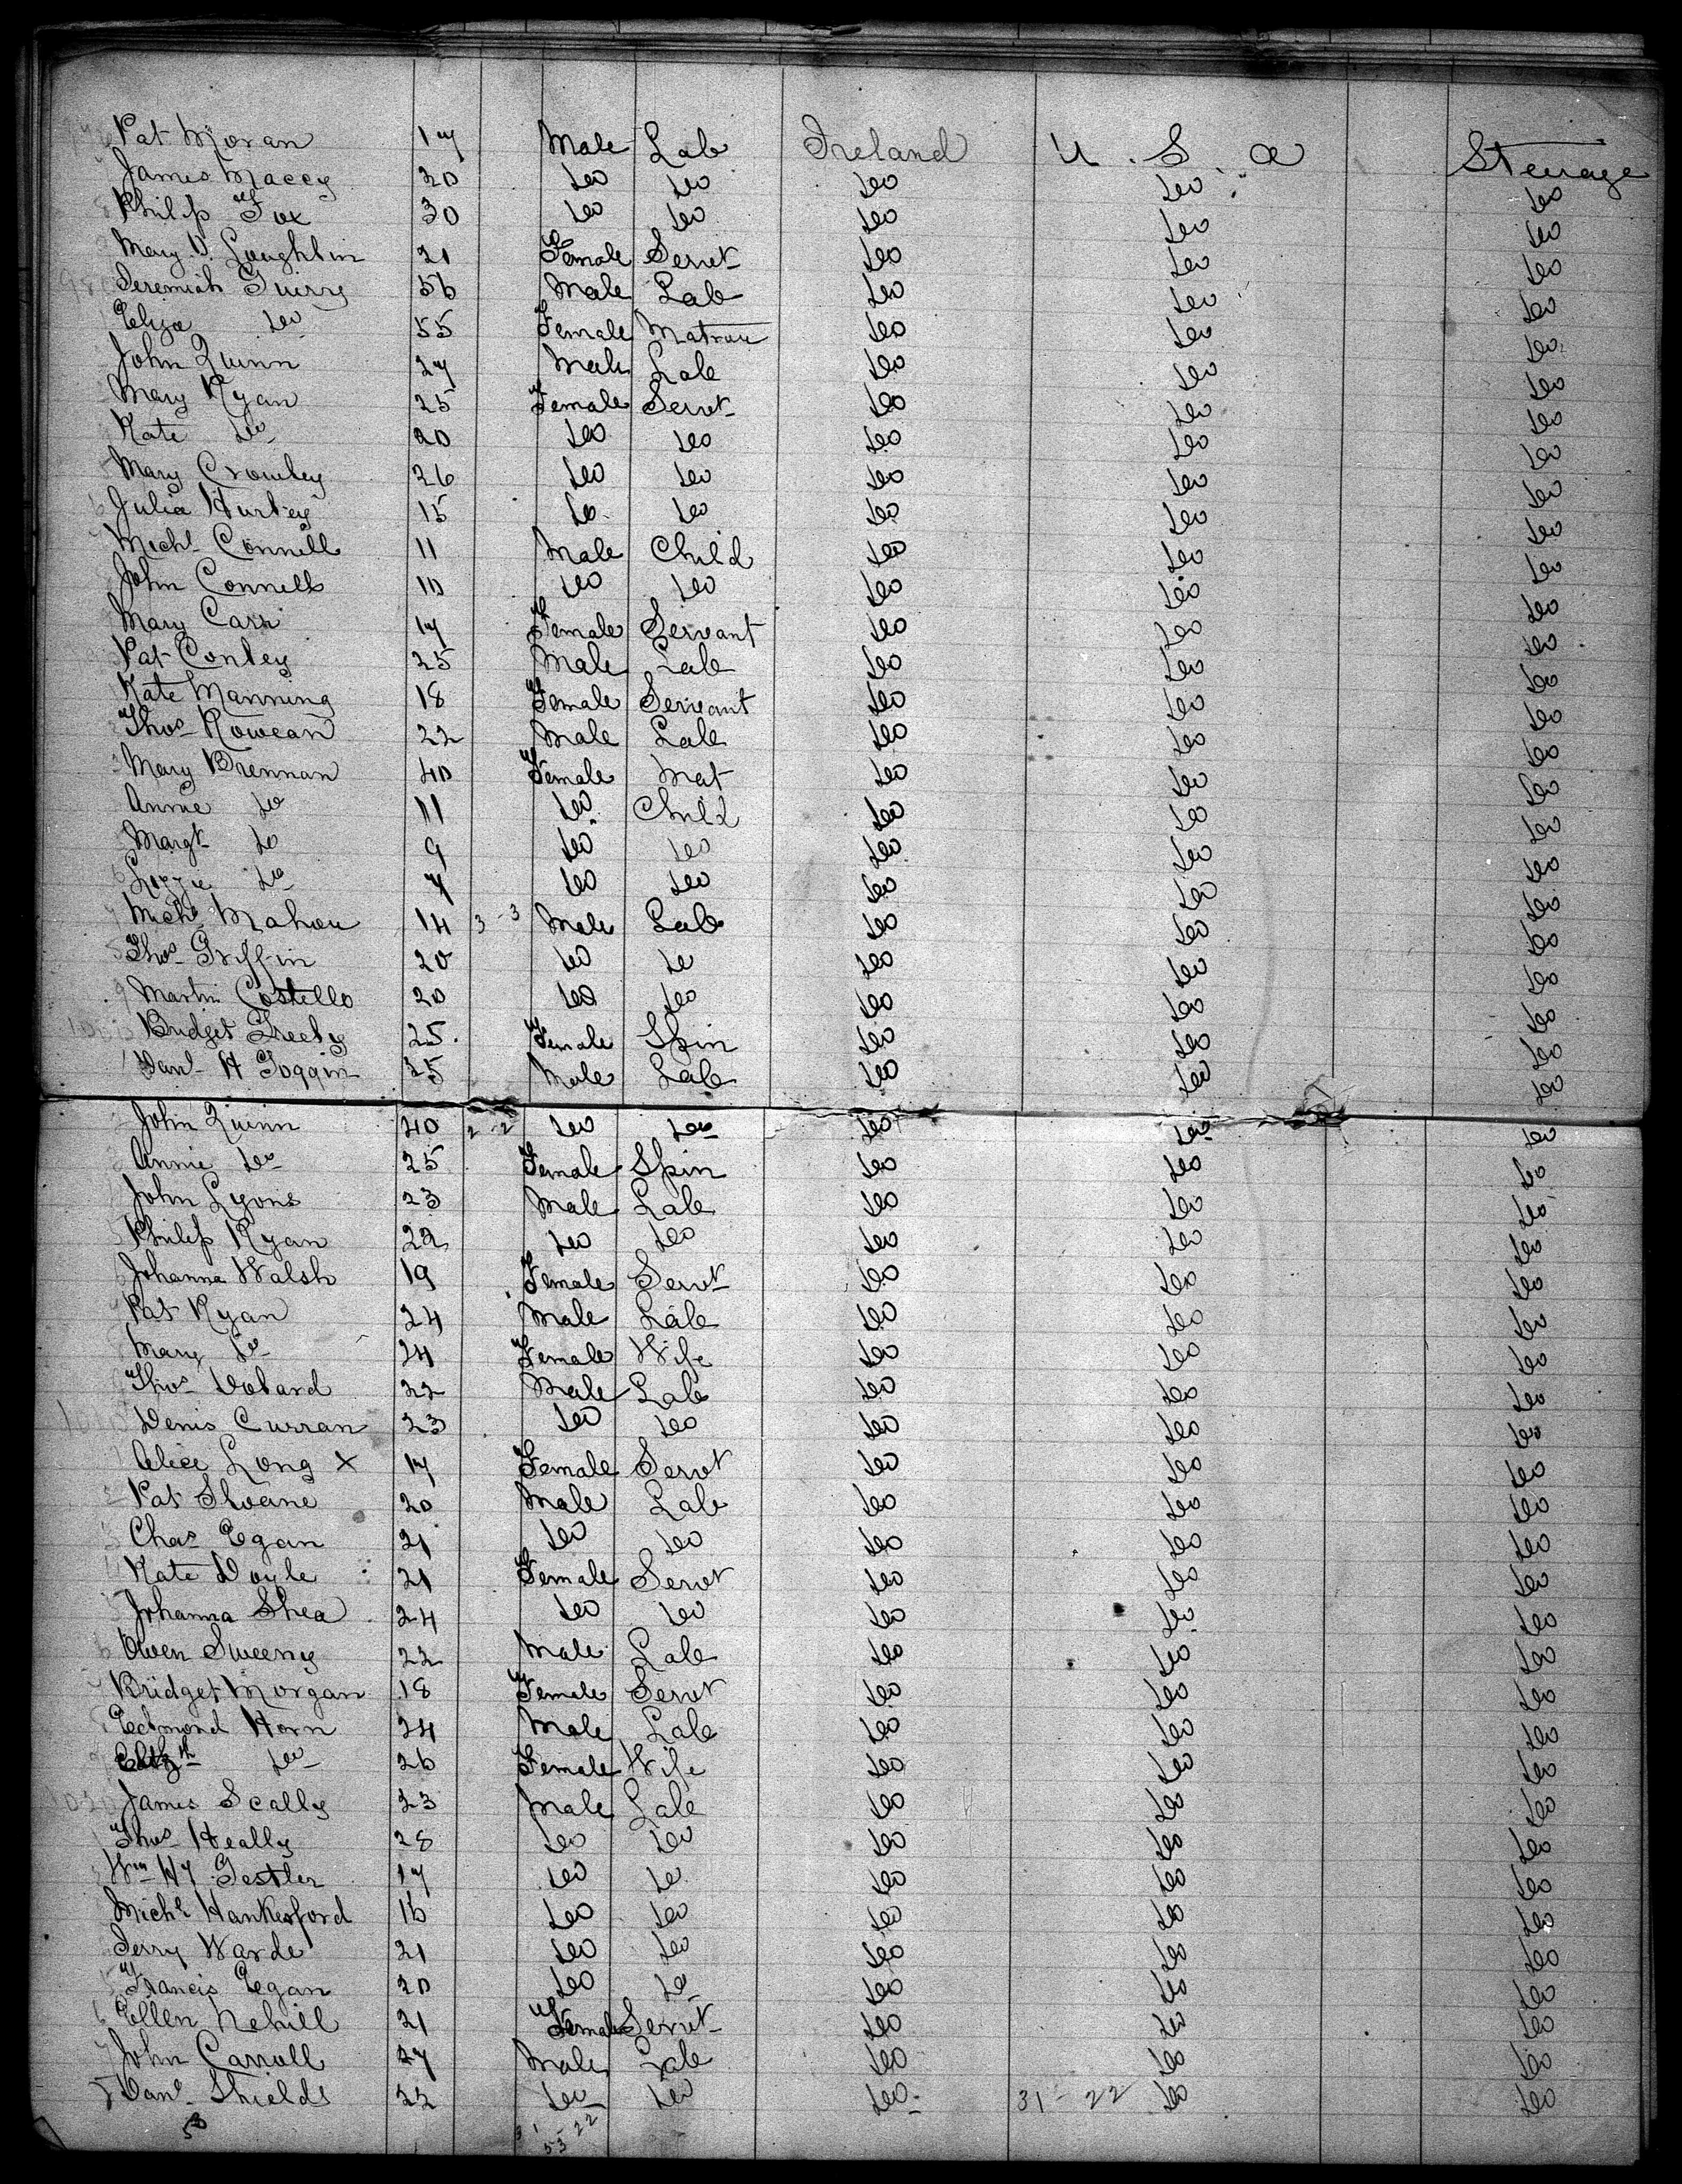 Pat Moran 17 Male Lab Ireland U.S.a Steerage
James Macey 20 Do Do Do Do Do
Philip Fox 30 Do Do Do Do Do
Mary O'Loughlin 21 Female Servt Do Do Do
Jeremiah Guiry 56 Male Lab Do Do Do
Eliza Do 55 Female Matron Do Do Do
John Quinn 27 Male Lab Do Do Do
Mary Ryan 25 Female Servt Do Do Do
Kate Do 20 Do Do Do Do Do
Mary Crowley 26 Do Do Do Do Do
Julia Hurley 15 Do Do Do Do Do
Michl Connell 11 Male Child Do Do Do
John Connell 10 Do Do Do Do Do
Mary Carr 17 Female Servant Do Do Do
Pat Conley 25 Male Lab Do Do Do
Kate Manning 18 Female Servant Do Do Do
Thos Rowean 22 Male Lab Do Do Do
Mary Brennan 40 Female Mat Do Do Do
Annie Do 11 Do Child Do Do Do
Margt Do 9 Do Do Do Do Do
Lizzie Do 7 Do Do Do Do Do
Michl Mahon 14 3-3 Male Lab Do Do Do
Thos Griffin 20 Do Do Do Do Do
9 Martin Costello 20 Do Do Do Do Do
Bridget Greely 25 Female Spin Do Do Do
Danl H Goggin 25 Male Lab Do Do Do
John Quinn 40 2-2 Do Do Do Do Do
Annie Do 25 Female Spin Do Do Do
John Lyons 23 Male Lab Do Do Do
Philip Ryan 22 Do Do Do Do Do
Johanna Walsh 19 Female Servt Do Do Do
Pat Ryan 24 Male Lab Do Do Do
Mary Do 24 Female Wife Do Do Do
Thos Doland 22 Male Lab Do Do Do
Denis Curran 23 Do Do Do Do Do
Alice Long X 17 Female Servt Do Do Do
Pat Sloane 20 Male Lab Do Do Do
Chas Egan 21 Do Do Do Do Do
Kate Doyle 21 Female Servt Do Do Do
Johanna Shea 24 Do Do Do Do Do
Owen Sweeny 22 Male Lab Do Do Do
Bridget Morgan 18 Female Servt Do Do Do
Edmond Horn 24 Male Lab Do Do Do
Elizth Do 26 Female Wife Do Do Do
James Scally 23 Male Lab Do Do Do
Thos Heally 28 Do Do Do Do Do
Wm Hy Gestler 17 Do Do Do Do Do
Michl Hankesford 16 Do Do Do Do Do
Jerry Warde 21 Do Do Do Do Do
Francis Egan 20 Do Do Do Do Do
Ellen Nehill 21 Female Servt Do Do Do
John Carroll 27 Male Lab Do Do Do
Danl Shields 22 Do Do Do 31-22 Do Do
53 31-22
53